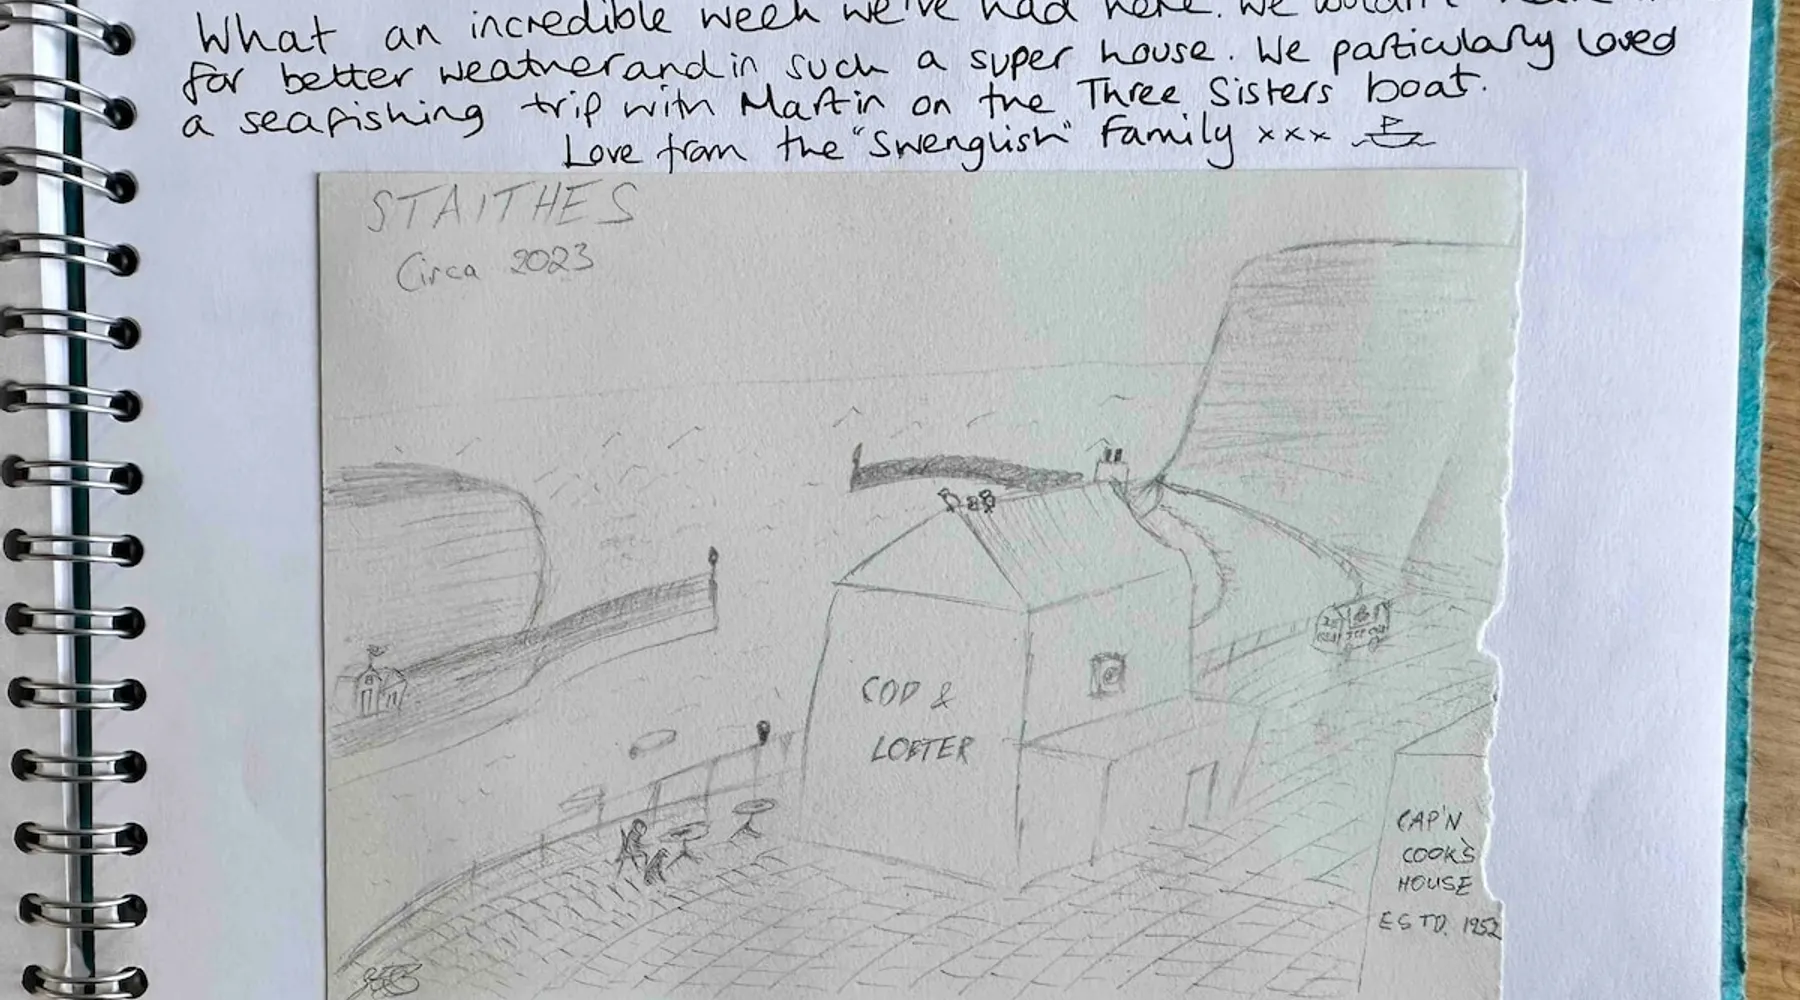 What an incredible week we've had here. We
for better weather and in such a super house. We particularly loved
a seafishing trip with Martin on the Three Sisters boat.
Love from the "Swenglish" Family xxx
STAITHES
Circa 2023
COD &
LOBTER
CAP'N
COOK'S
HOUSE
ESTD. 1952